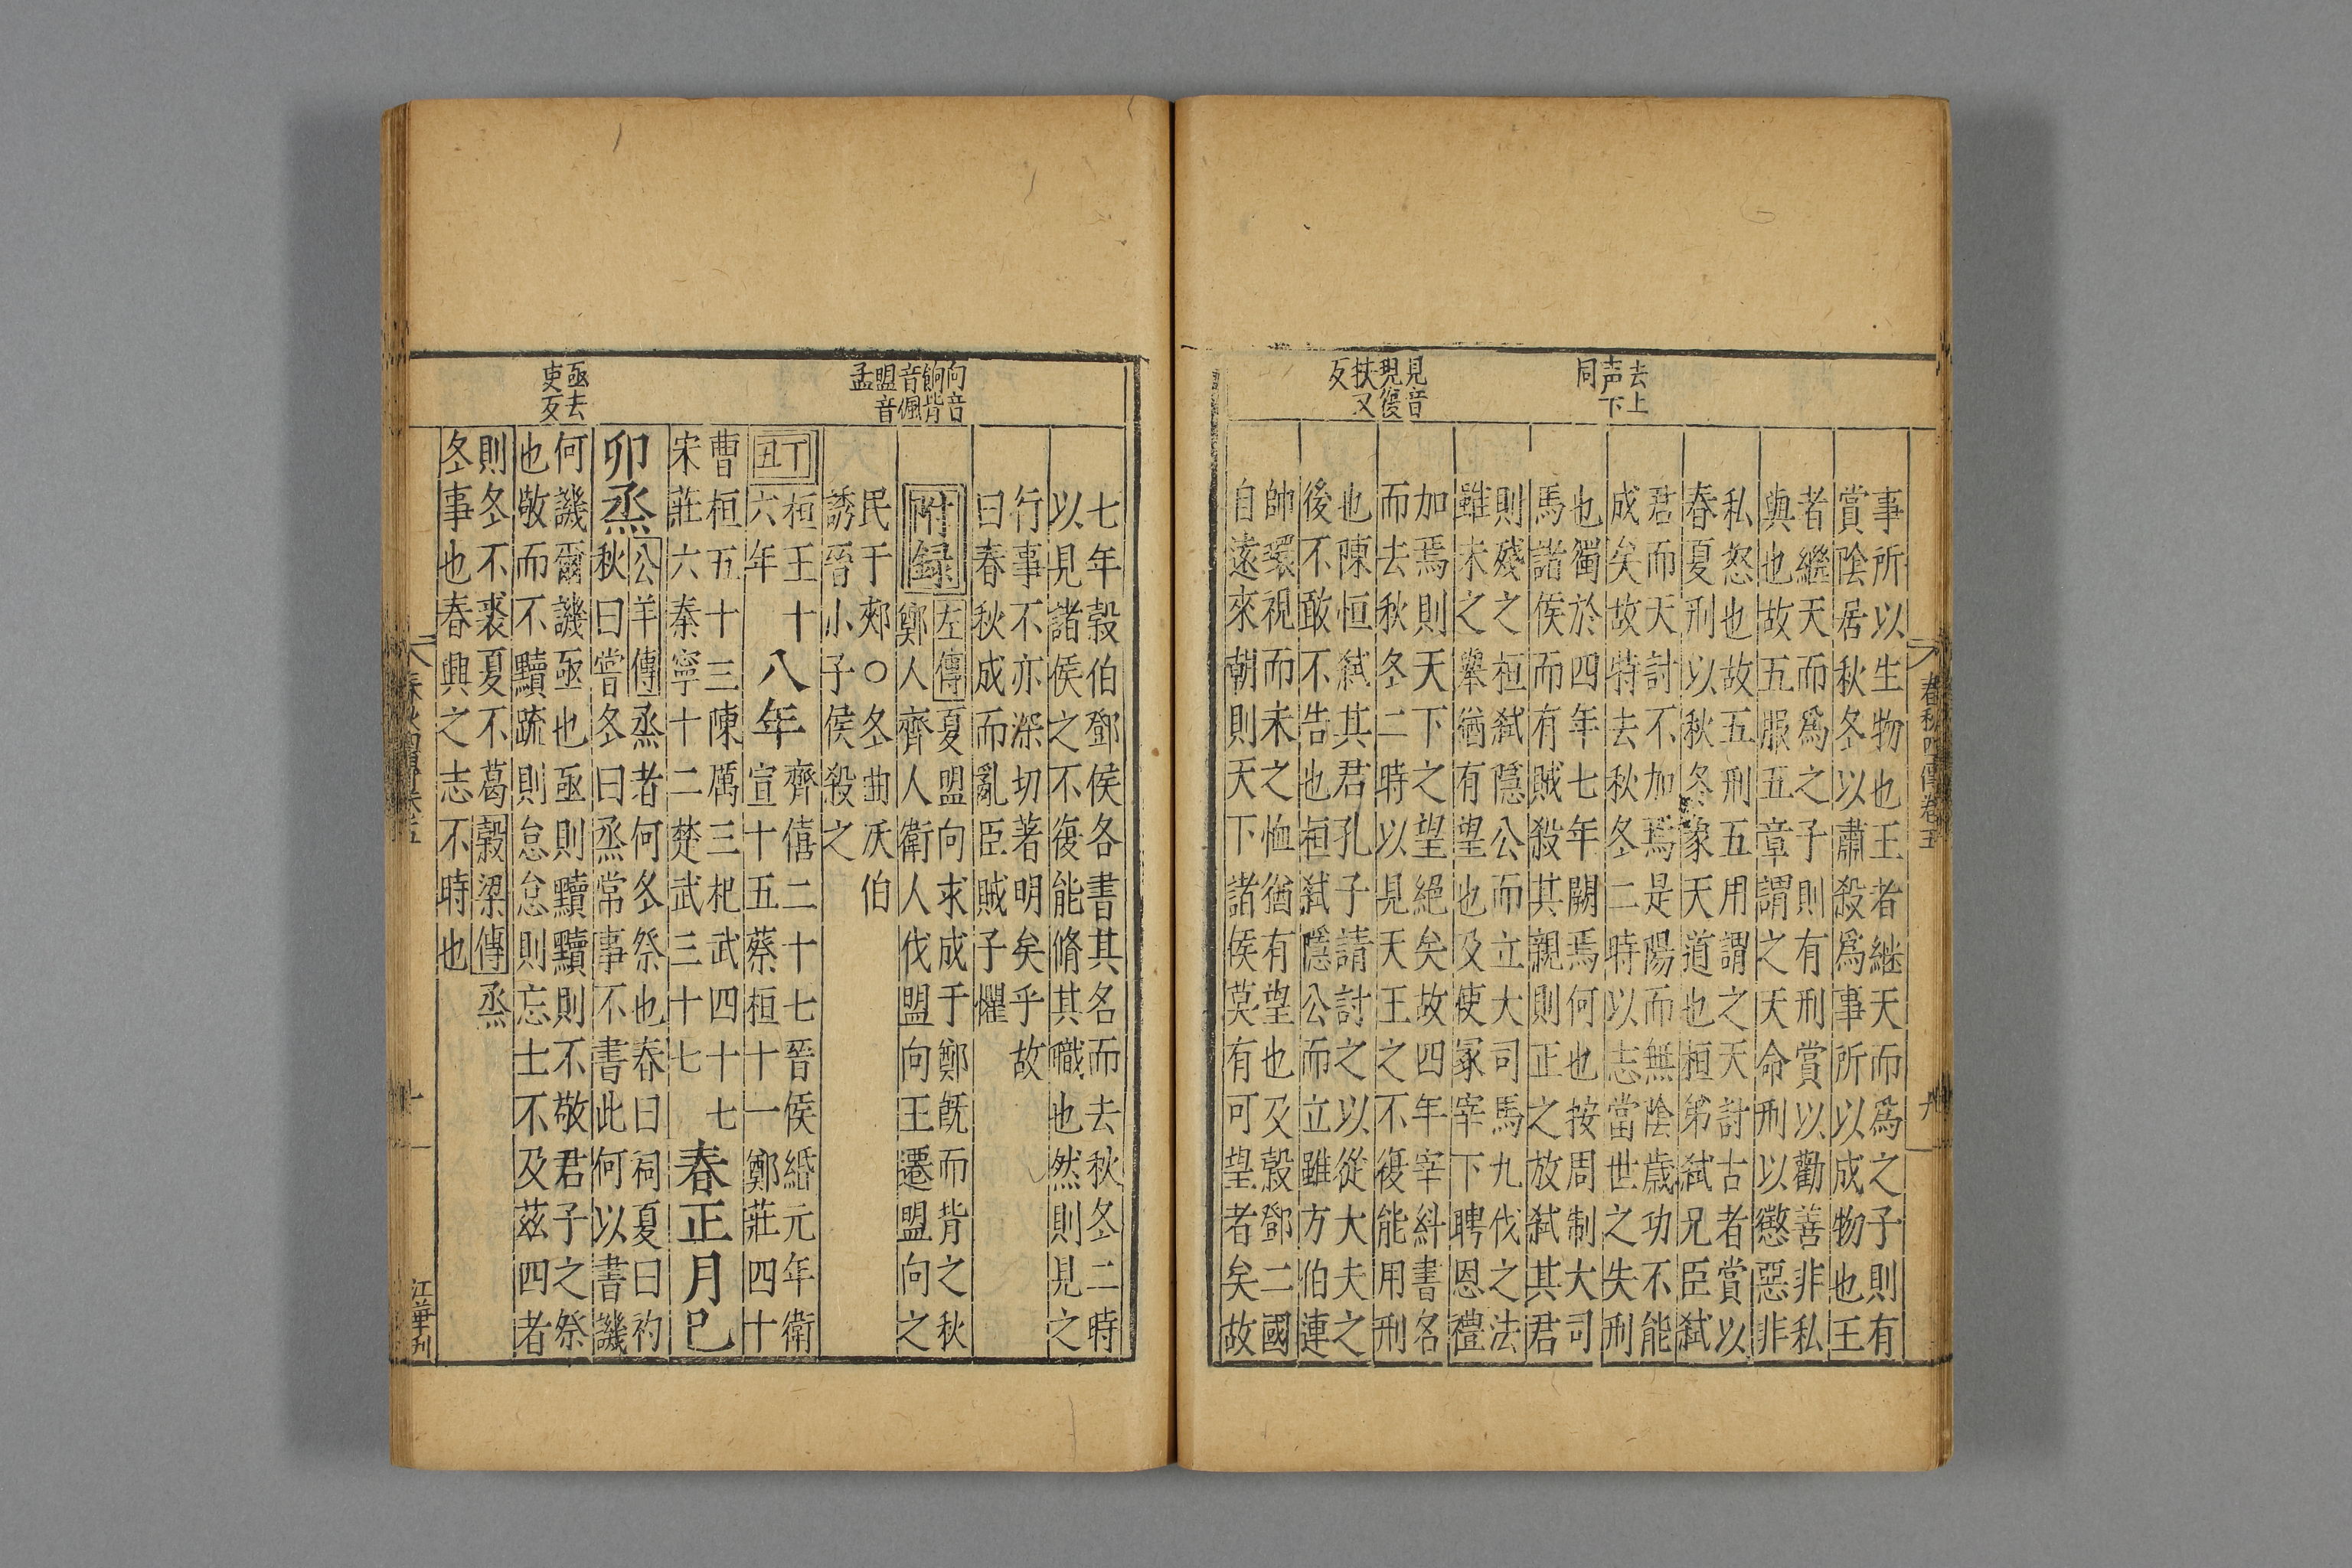 春秋四傳卷五
九
去上
声下
同
見音
現復
扶又
反
事所以生物也王者継天而為之子則有
賞陰居秋冬以肅殺爲事所以成物也王
者繼天而爲之子則有刑賞以勸善非私
與也故五服五章謂之天命刑以懲惡非
私怒也故五刑五用謂之天討古者賞以
春夏刑以秋冬象天道也桓弟弑兄臣弑
君而天討不加焉是陽而無陰歲功不能
成矣故特去秋冬二時以志當世之失刑
也獨於四年七年闕焉何也按周制大司
馬諸侯而有賊殺其親則正之放弑其君
則殘之桓弑隱公而立大司馬九伐之法
雖未之舉猶有望也及使冢宰下聘恩禮
加焉則天下之望絕矣故四年宰糾書名
而去秋冬二時以見天王之不復能用刑
也陳恒弑其君孔子請討之以從大夫之
後不敢不告也桓弑隱公而立雖方伯連
帥環視而未之恤猶有望也及榖鄧二國
自遠來朝則天下諸侯莫有可望者矣故
向音
餉背
音佩
盟音
孟
亟去
吏反
七年榖伯鄧侯各書其名而去秋冬二時
以見諸侯之不復能脩其職也然則見之
行事不亦深切著明矣乎故
曰春秋成而亂臣賊子懼
附録
左傳夏盟向求成于鄭旣而背之秋
鄭人齊人衛人伐盟向王遷盟向之
民于郟○冬曲沃伯
誘晉小子侯殺之
丁丑
桓王十
六年
八年
齊僖二十七晉侯緡元年衛
宣十五蔡桓十一鄭莊四十
曹桓五十三陳厲三杞武四十七
宋莊六秦寧十二楚武三十七
春正月巳
卯烝
公羊傳烝者何冬祭也春曰祠夏曰礿
秋曰嘗冬曰烝常事不書此何以書譏
何譏爾譏亟也亟則黷黷則不敬君子之祭
也敬而不黷疏則怠怠則忘士不及茲四者
則冬不裘夏不葛榖梁傳烝
冬事也春興之志不時也
十
江華刊